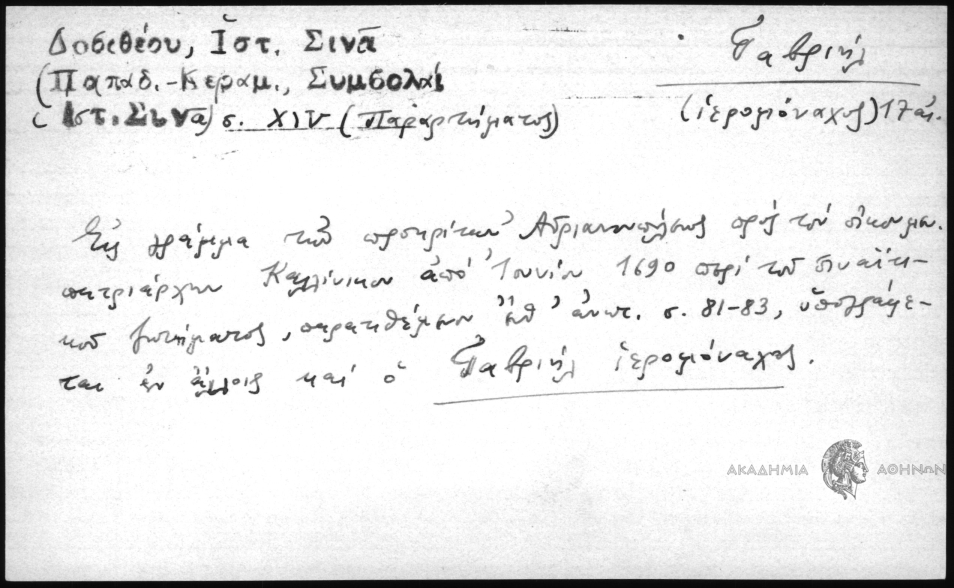 Δοσιθέου, Ἱστ. Σινᾶ
(Παπαδ.-Κεραμ., Συμβολαί
Ἱστ. Σινᾶ) σ. XIV (Παραρτήματος)
Γαβριήλ
(ἱερομόναχος) 17 αἰ.
Εἰς γράμμα τῶν προκρίτων Ἀδριανουπόλεως πρός τόν οἰκουμεν.
πατριάρχην Καλλίνικον ἀπό Ἰουνίου 1690 περί τοῦ σιναϊτι-
κοῦ ζητήματος, παρατιθέμενον ἀνωτ. σ. 81-83, ὑπογράφε-
ται ἐν ἄλλοις καί ὁ Γαβριήλ ἱερομόναχος.
ΑΚΑΔΗΜΙΑ ΑΘΗΝΩΝ